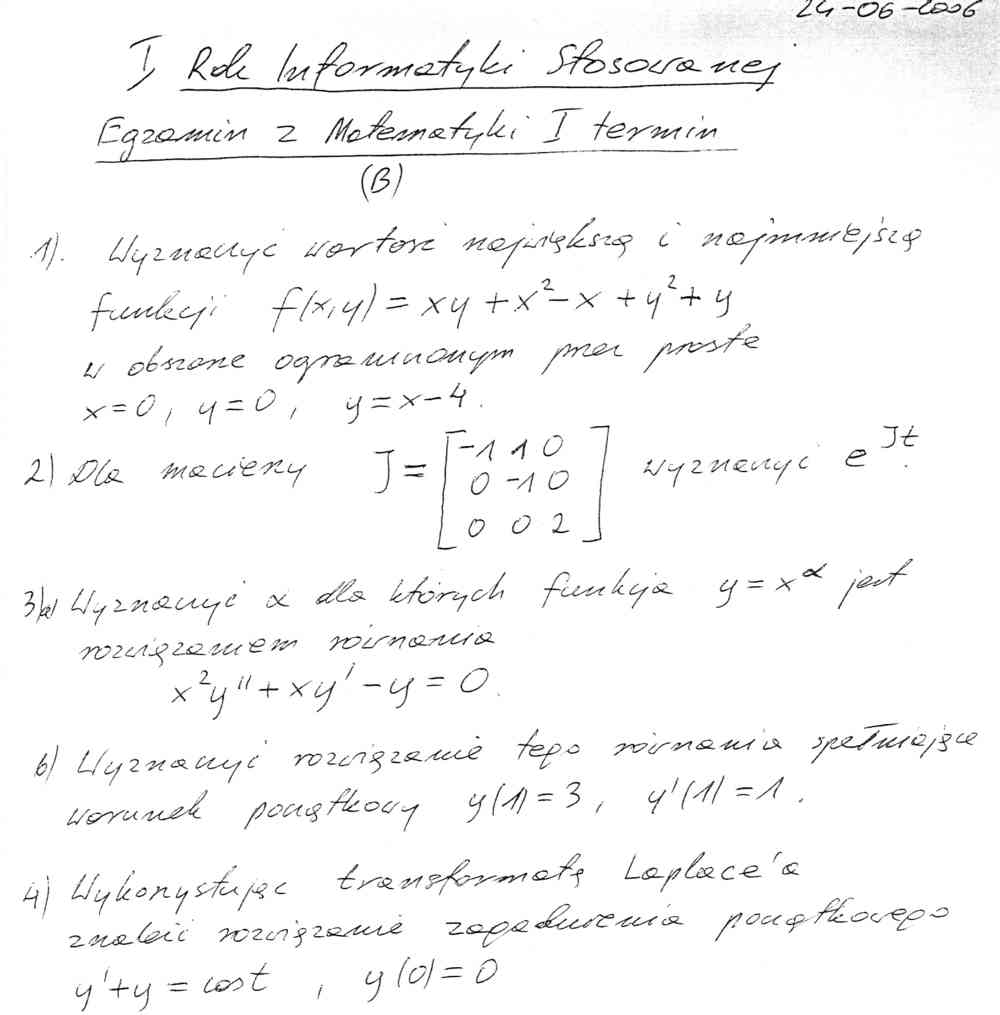 24-06-2006
I Rok Informatyki Stosowanej
Egzamin z Matematyki I termin
(B)
1). Wyznaczyć wartość największą i najmniejszą
funkcji f(x,y) = xy + x² - x + y² + y
w obszarze ograniczonym przez proste
x=0, y=0, y=x-4.
2) Dla macierzy J = [-1 1 0
0 -1 0
0 0 2] wyznaczyć e^{Jt}.
3)a) Wyznaczyć α dla których funkcja y = x^α jest
rozwiązaniem równania
x²y'' + xy' - y = 0.
b) Wyznaczyć rozwiązanie tego równania spełniające
warunek początkowy y(1) = 3, y'(1) = 1.
4) Wykorzystując transformatę Laplace'a
znaleźć rozwiązanie zagadnienia początkowego
y' + y = cost , y(0) = 0